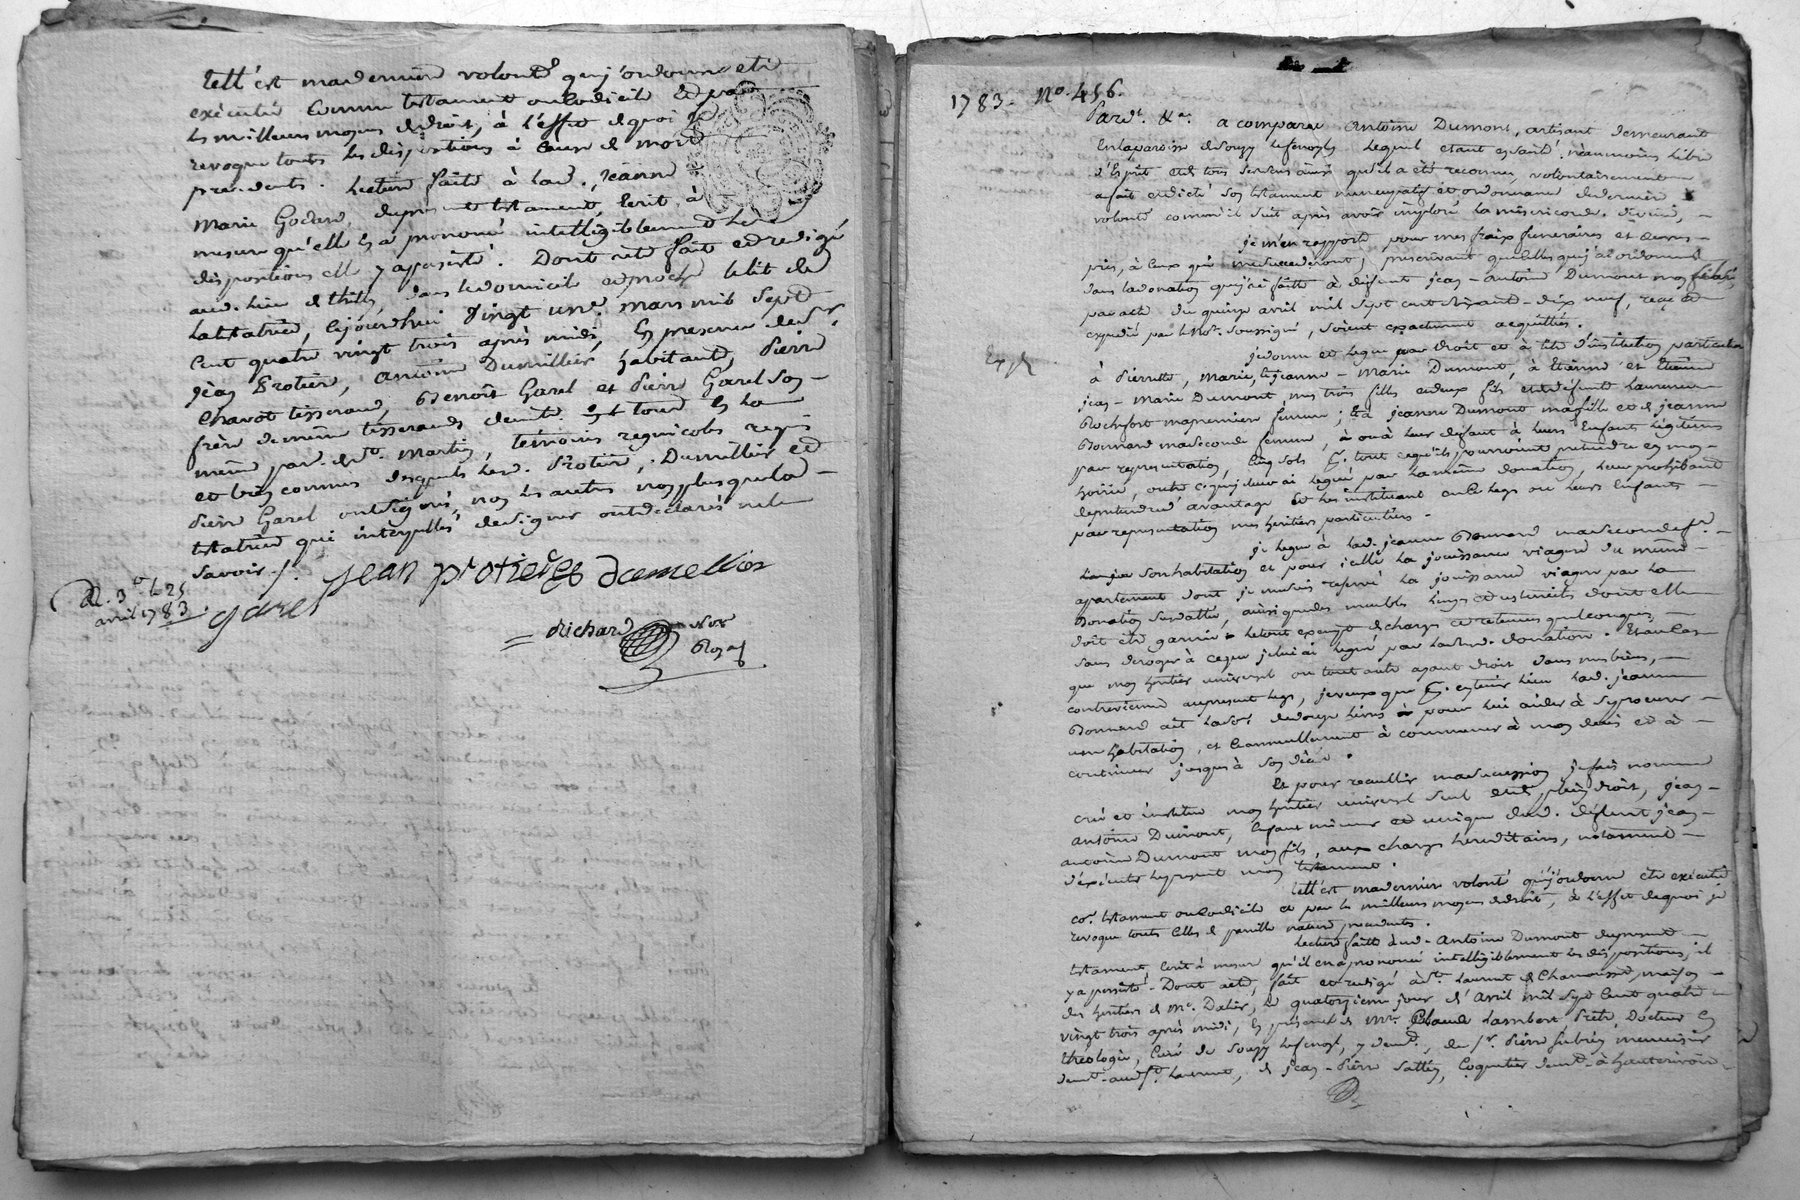 telle est ma derniere volonté que j'ordonne etre
executée comme testament ou codicile et par
les meilleurs moyens de droit, à l'effet de quoi je
revoque toutes les dispositions à cause de mort
precedentes. Lecture faite à lad. jeanne
Marie Godard, du present testament, ecrit à
mesure qu'elle en a prononcé intelligiblement les
dispositions elle y a persisté. Dont acte fait et redigé
aud. lieu de thilly, dans le domicile et proche le lit de
la testatrice, cejourd'hui vingt un mars mil sept
cent quatre vingt trois après midi, en presence de sr.
jean Protiere, Antoine Dumillier habitants, Pierre
Chavot tisserand, Benoit Garel et Pierre Garel son
frere de même tisserands demts. tous en la
même par. de st. Martin, témoins regnicoles requis
et très connus desquels lesd. Protiere, Dumillier et
Pierre Garel ont signé, non les autres non plus que la
testatrice qui interpellés de signer ont declaré ne le
savoir ./.
jean protiere dumellier
R. 3 le 25
avril 1783.
garel
Richard Nore
Royal
1783. No. 456.
Pardt. &a. a comparu Antoine Dumont, artisant demeurant
en la paroisse de Souzy lequel etant en santé, neanmoins libre
d'esprit et de tous ses sens ainsi qu'il a été reconnu, volontairement
a fait et dicté son testament nuncupatif et ordonnance de derniere
volonté comme il suit après avoir imploré la misericorde divine,
je m'en rapporte pour mes fraix funeraires et
prieres, à ceux qui me succederont, prescrivant que celles que j'ai ordonnées
dans la donation que j'ai faitte à defunt jean-antoine Dumont mon fils
par acte du quinze avril mil sept cent soixante-dix neuf, reçu et
expedié par le Nore. soussigné, soient exactement acquittées.
Exp.
je donne et legue par droit et à titre d'institution particuliere
à Pierrette, Marie, et jeanne-Marie Dumont, à Etienne et
jean-Marie Dumont, mes trois filles et deux fils et de defunte Laurence
Rochefort ma premiere femme; et à jeanne Dumont ma fille et de jeanne
Bonnand ma seconde femme, ou à leur defaut à leurs Enfants legitimes
par representation, cinq sols pr. tout ce qu'ils pourroient pretendre en mon
hoirie, outre ce que je leur ai legué par la même donation, leur prohibant
de pretendre d'avantage et les instituant au de legs ou leurs Enfants
par representation mes heritiers particuliers.
je legue à lad. jeanne Bonnand ma seconde fe.
son habitation et pour icelle la jouissance viagere du même
appartement dont je me suis reservé la jouissance viagere par la
Donation susdattée, ainsi que des meubles linges et ustensiles dont elle
doit etre garnie le tout exempt de charges et retenues quelconques,
sans deroger à ce que je lui ai legué par lad. donation. Et au cas
que mon heritier universel ou tout autre ayant droit dans mes biens,
contrevienne au present legs, je veux que pr. en tenir lieu lad. jeanne
Bonnand ait la some de douze livres pour lui aider à se procurer
une habitation, et annuellement à commencer à mon decès et à
continuer jusques à son décès.
Et pour recueillir ma succession je fais nomme
crée et institue mon heritier universel seul et de plein droit, jean
antoine Dumont, enfant mineur et unique dud. defunt jean
antoine Dumont mon fils, aux charges hereditaires, notamment
d'executer le present mon testament.
telle est ma derniere volonté que j'ordonne etre executée
coe. testament ou codicile et par les meilleurs moyens de droit, à l'effet de quoi je
revoque toutes celles de pareille nature precedentes.
Lecture faitte aud. Antoine Dumont du present
testament ecrit à mesure qu'il en a prononcé intelligiblement les dispositions, il
y a persisté. Dont acte, fait et redigé à st. Laurent de Chamousset, maison
des heritiers de Mr. Dalier, le quatorzieme jour d'Avril mil sept cent quatre
vingt trois après midi, en presence de Mre. Claude Lambert Pretre, Docteur en
theologie, Curé de Souzy, y demt., de sr. Pierre menuisier
demt. aud. st. Laurent, et jean-Pierre Coquetier demt. à hauterivoire